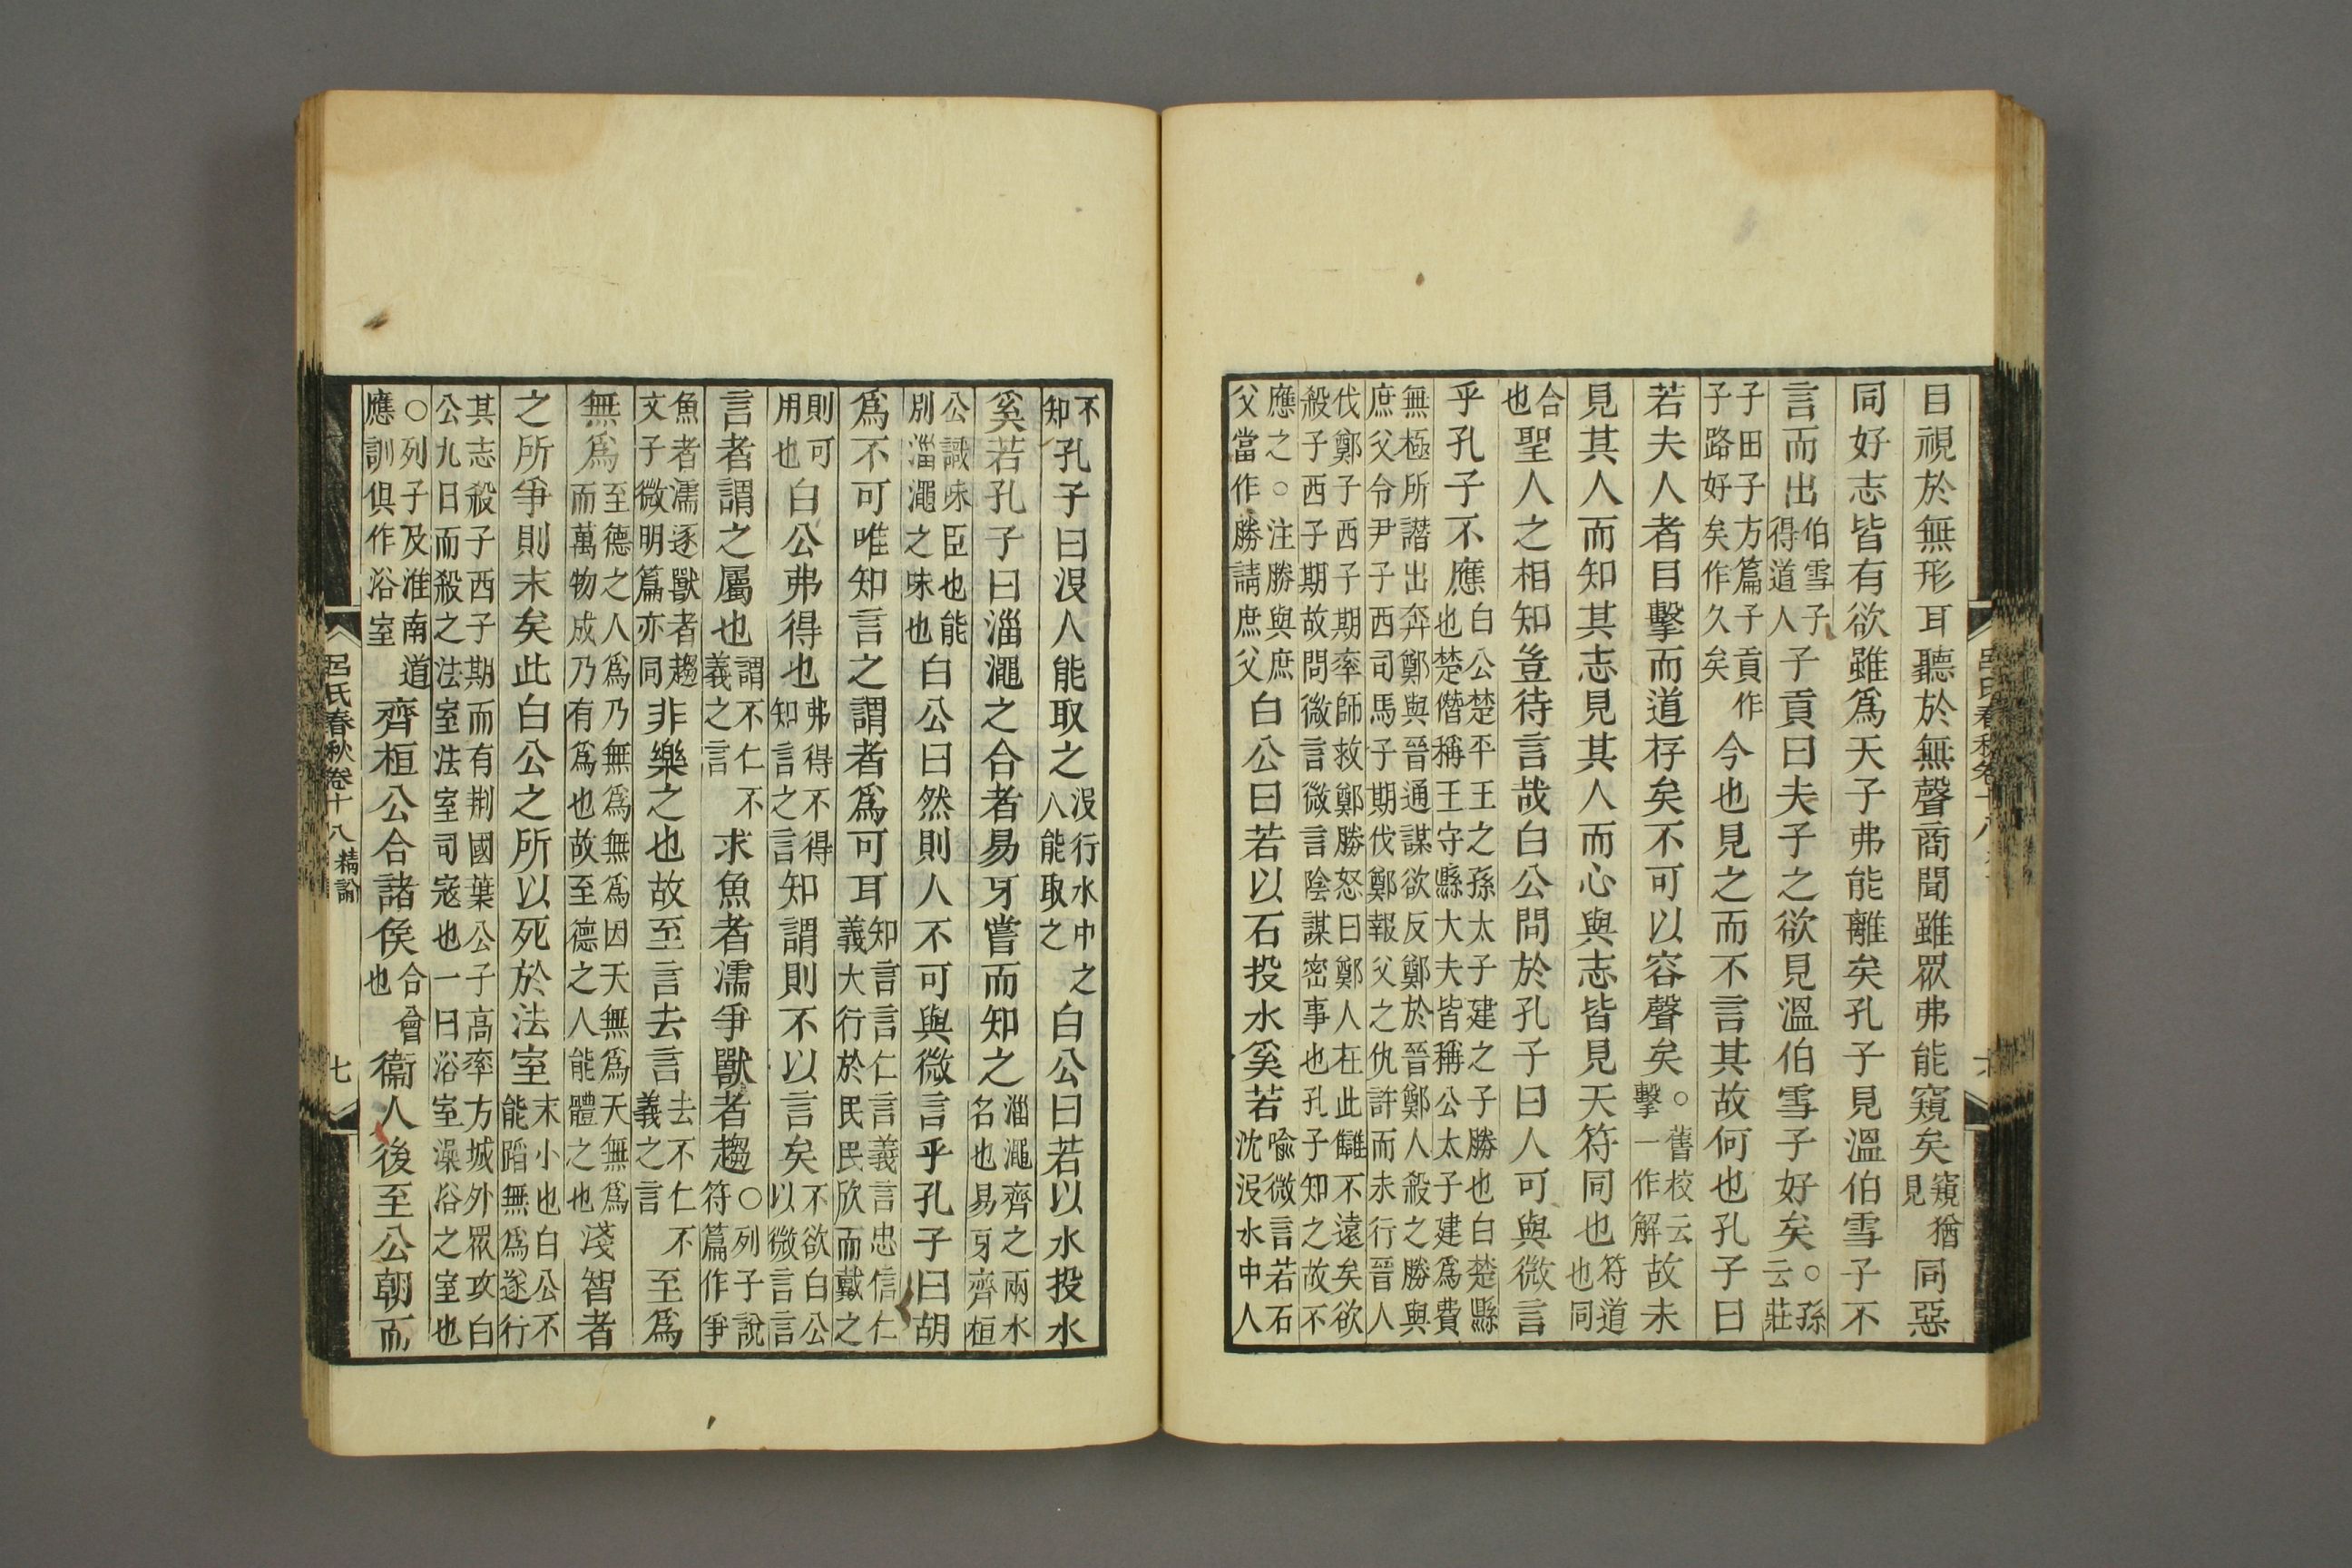 目視於無形耳聽於無聲商聞雖眾弗能窺矣窺猶見同惡
同好志皆有欲雖爲天子弗能離矣孔子見溫伯雪子不
言而出伯雪子得道人子貢曰夫子之欲見溫伯雪子好矣○孫云莊
子田子方篇子貢作子路好矣作久矣今也見之而不言其故何也孔子曰
若夫人者目擊而道存矣不可以容聲矣○舊校云擊一作解故未
見其人而知其志見其人而心與志皆見天符同也符道也同
合也聖人之相知豈待言哉白公問於孔子曰人可與微言
乎孔子不應白公楚平王之孫太子建之子勝也白楚縣也楚僭稱王守縣大夫皆稱公太子建爲費
無極所譖出奔鄭與晉通謀欲反鄭於晉鄭人殺之勝與庶父令尹子西司馬子期伐鄭報父之仇許而未行晉人
伐鄭子西子期率師救鄭勝怒曰鄭人在此讎不遠矣欲殺子西子期故問微言微言陰謀密事也孔子知之故不
應之○注勝與庶父當作勝請庶父白公曰若以石投水奚若喻微言若石沈沒水中人
不知孔子曰沒人能取之沒行水中之人能取之白公曰若以水投水
奚若孔子曰淄澠之合者易牙嘗而知之淄澠齊之兩水名也易牙齊桓
公識味臣也能別淄澠之味也白公曰然則人不可與微言乎孔子曰胡
爲不可唯知言之謂者爲可耳知言言仁言義言忠信仁義大行於民民欣而戴之
則可用也白公弗得也弗得不得知言之言知謂則不以言矣不欲白公以微言言
言者謂之屬也謂不仁不義之言求魚者濡爭獸者趨○列子說符篇作爭
魚者濡逐獸者趨文子微明篇亦同非樂之也故至言去言去不仁不義之言至爲
無爲至德之人爲乃無爲無爲因天無爲天無爲而萬物成乃有爲也故至德之人能體之也淺智者
之所爭則末矣此白公之所以死於法室末小也白公不能蹈無爲遂行
其志殺子西子期而有荆國葉公子高率方城外眾攻白公九日而殺之法室法室司寇也一曰浴室澡浴之室也
○列子及淮南道應訓俱作浴室齊桓公合諸侯合會也衞人後至公朝而
呂氏春秋卷十八 精諭 七